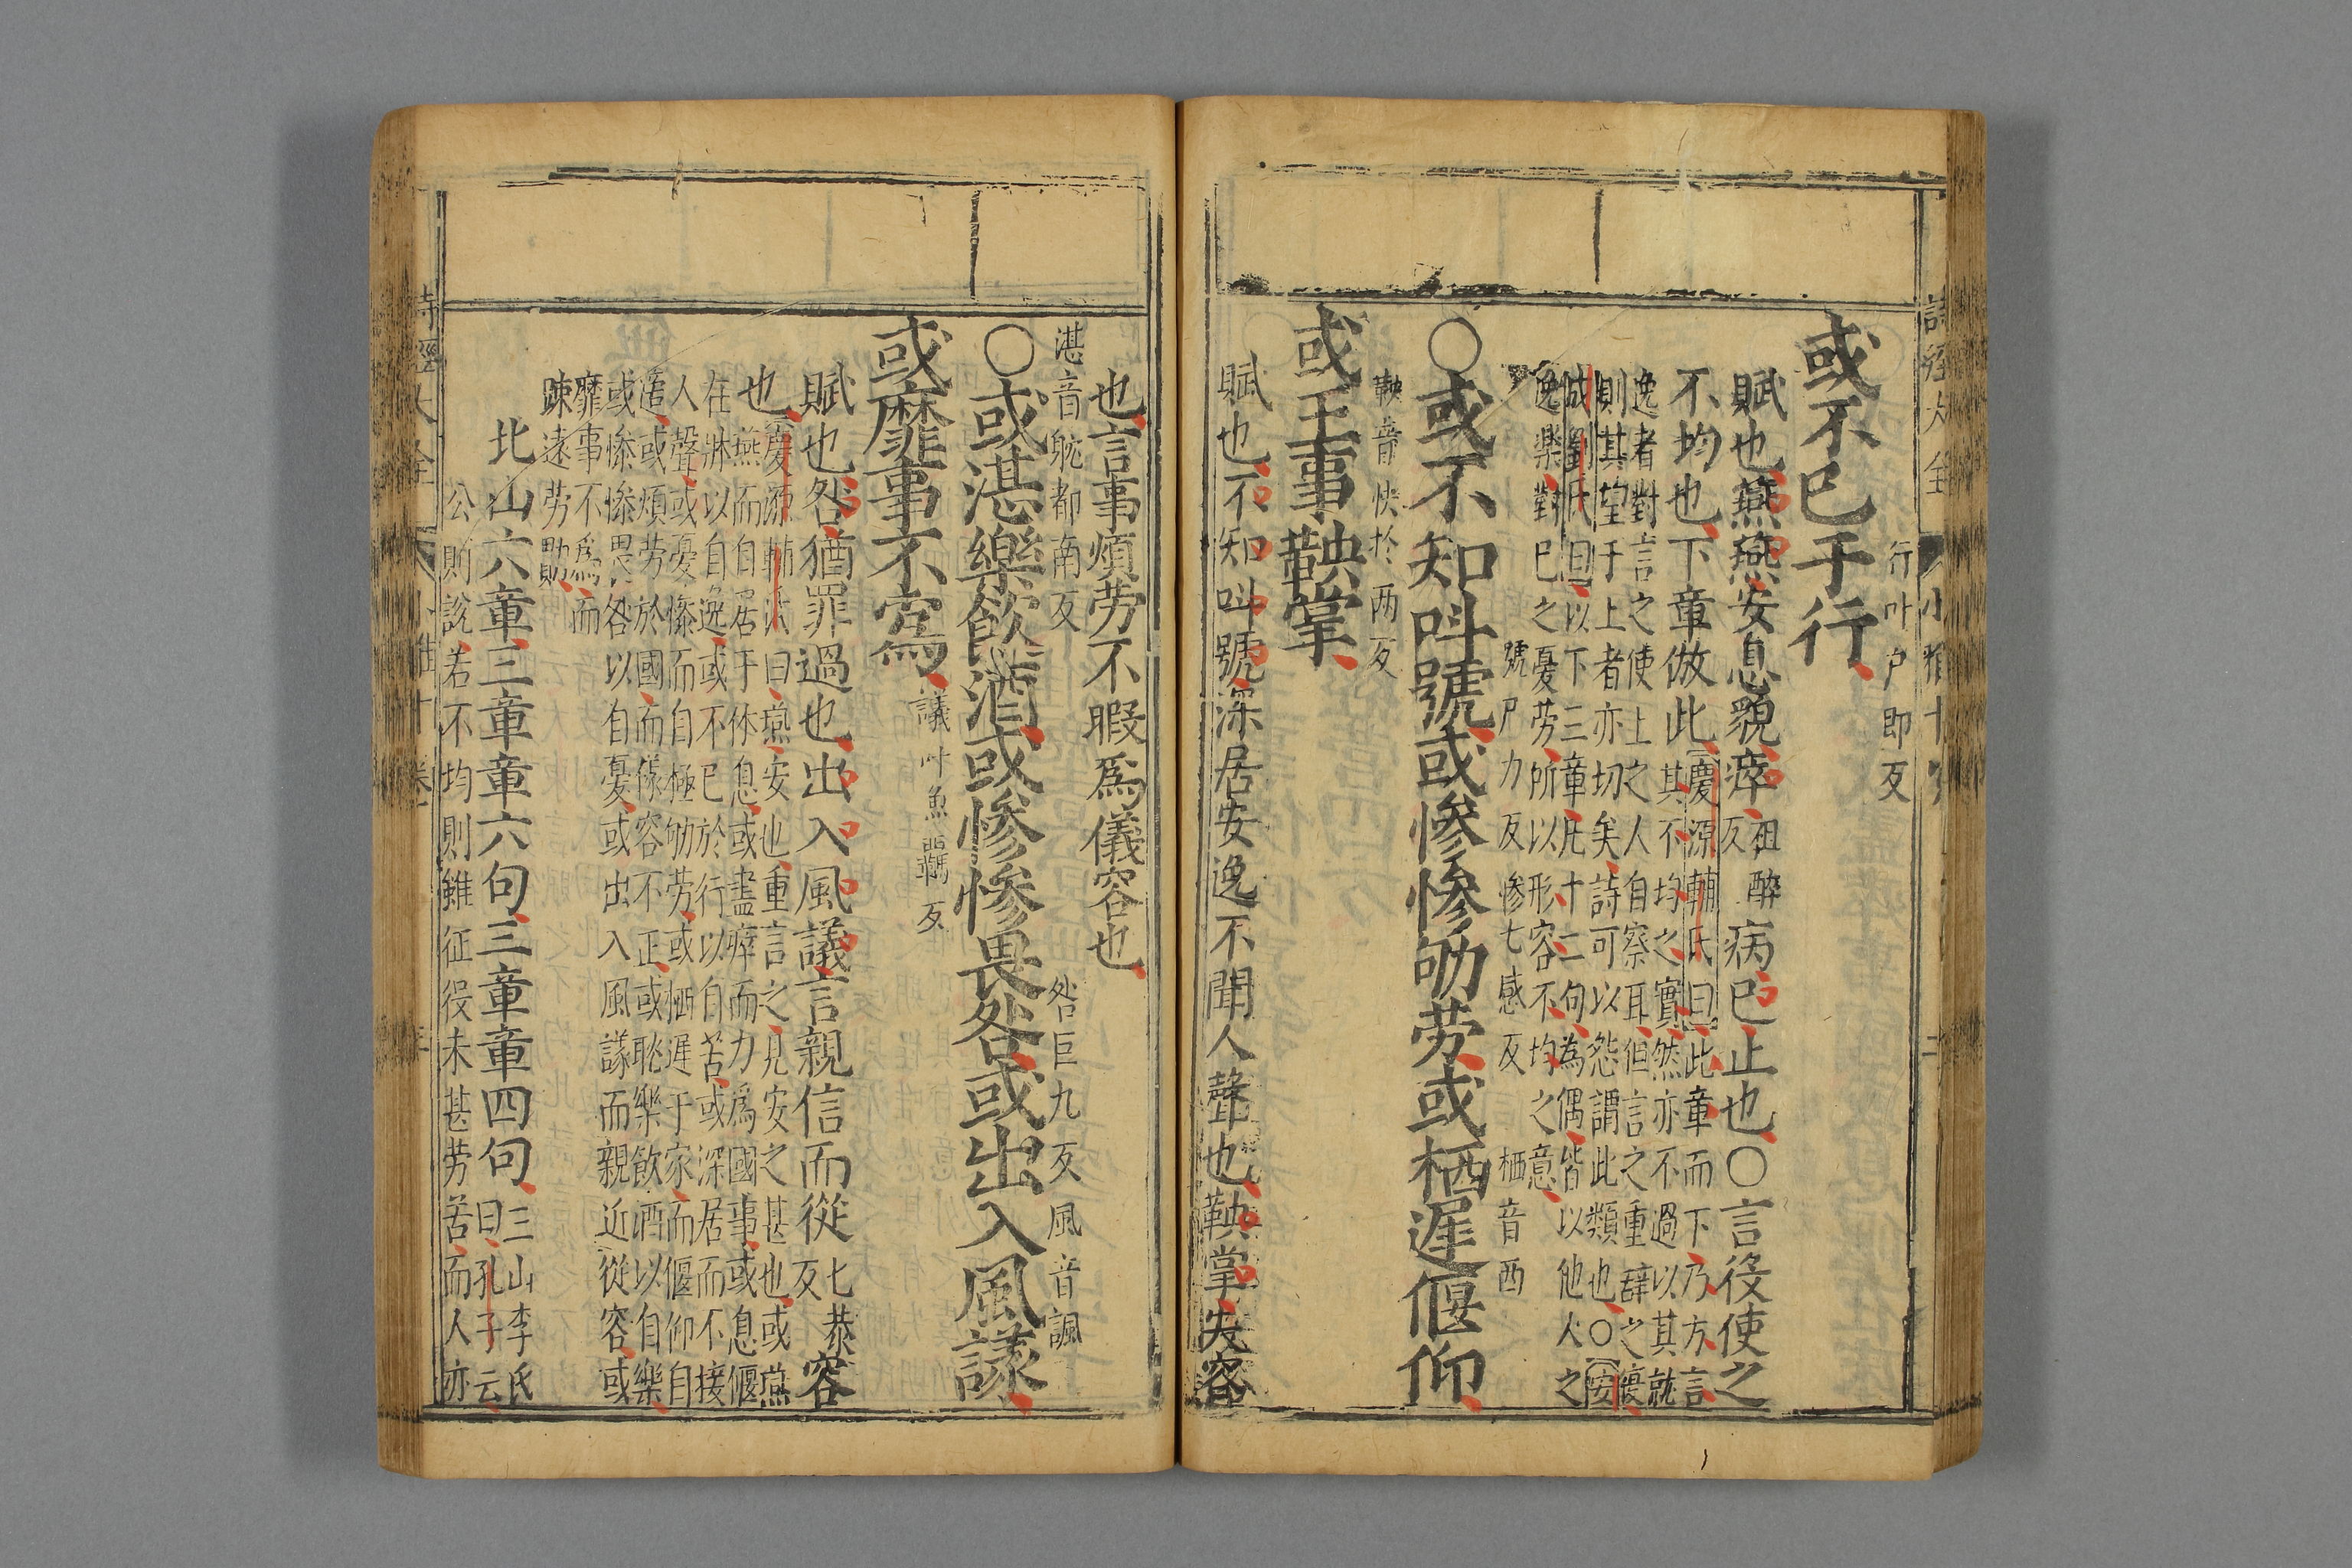 詩經大全
小雅十
行叶戶郎反
或不已于行
賦也燕燕安息貌瘁祖醉反病已止也○言役使之
不均也下章倣此慶源輔氏曰此章而下乃方言
其不均之實然亦不過以其就
逸者對言之使上之人自察耳但言之重辭之復
則其望于上者亦切矣詩可以怨謂此類也○安
成劉氏曰以下三章凡十二句為偶皆以他人之
逸樂對己之憂勞所以形容不均之意
號戶刀反慘七感反栖音西
○或不知叫號或慘慘劬劳或栖遲偃仰
鞅音怏於两反
或王事鞅掌
賦也不知叫號深居安逸不聞人聲也鞅掌失容
也言事煩劳不暇爲儀容也
湛音耽都南反咎巨九反風音諷
○或湛樂飲酒或慘慘畏咎或出入風議
議叶魚羈反
或靡事不爲
賦也咎猶罪過也出入風議言親信而從七恭反容
也慶源輔氏曰燕安也重言之見安之甚也或燕
燕而自居于休息或盡瘁而力爲國事或息偃
在牀以自逸或不已於行以自苦或深居而不接
人聲或憂慘而自極劬劳或栖遲于家而偃仰自
適或煩劳於國而儀容不正或耽樂飲酒以自樂
或慘慘畏咎以自憂或出入風議而親近從容或
靡事不爲而
踈遠劳勩
北山六章三章章六句三章章四句三山李氏
曰孔子云
公則說若不均則雖征役未甚劳苦而人亦
詩經大全